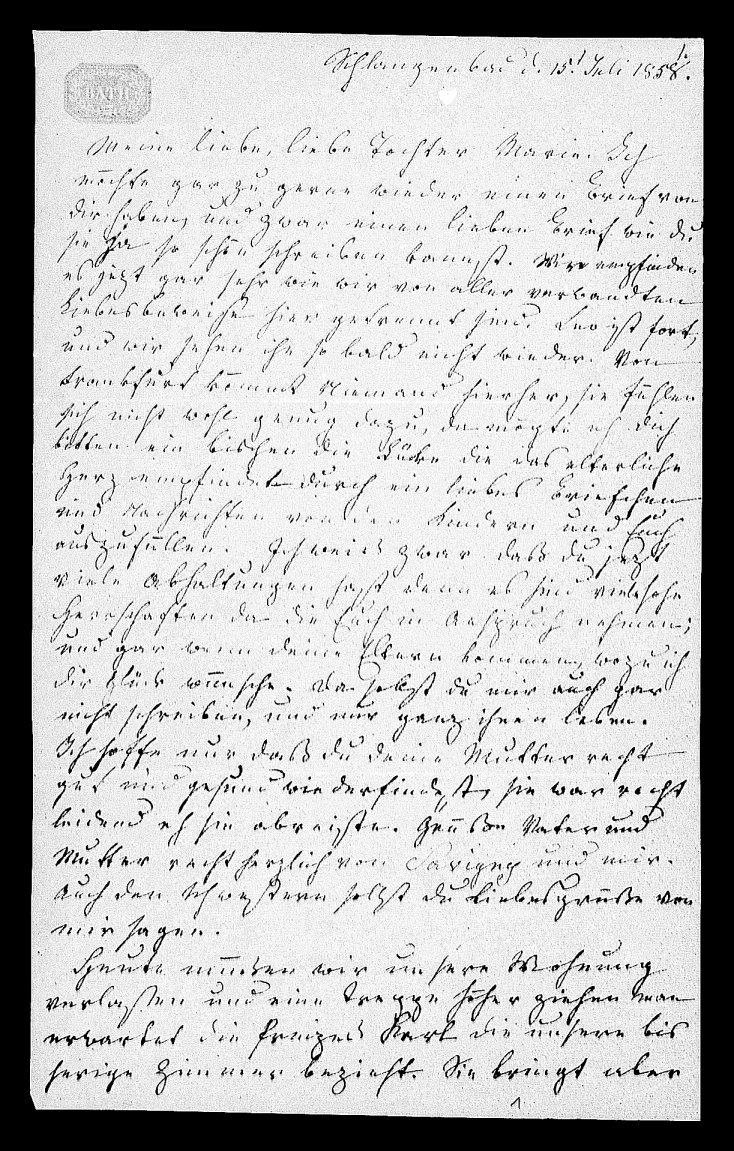 1.
BATH
Schlangenbad d. 15t Juli 1858.
Meine liebe, liebe Tochter Marie. Ich
möchte gar zu gerne wieder einen Brief von
dir haben, und zwar einen lieben Brief wie du
sie ja so schön schreiben kannst. Wir empfinden
es jezt gar sehr wie wir von aller verwandten
Liebesbeweise hier getrennt sind. Leo ist fort,
und wir sehen ihn so bald nicht wieder. Von
Frankfurt kommt Niemand hierher, sie fühlen
sich nicht wohl genug dazu, da mögte ich dich
bitten ein bischen die Lücke die das elterliche
Herz empfindet durch ein liebes Briefchen
und Nachrichten von den Kindern und Euch
auszufüllen. Ich weis zwar daß du jezt
viele Abhaltungen hast denn es sind viele hohe
Herrschaften da die Euch in Anspruch nehmen;
und gar wenn deine Eltern kommen, wozu ich
dir Glück wünsche. Da solst du mir auch gar
nicht schreiben, und nur ganz ihnen leben.
Ich hoffe nur daß du deine Mutter recht
gut und gesund wiederfindest, sie war recht
leidend eh sie abreiste. Grüße Vater und
Mutter recht herzlich von Savigny und mir.
Auch den Schwestern solst du Liebesgrüße von
mir sagen.
Heute müssen wir unsere Wohnung
verlaßen und eine Treppe höher ziehen man
erwartet die Prinzeß Karl die unsere bis
herige Zimmer bezieht. Sie bringt aber